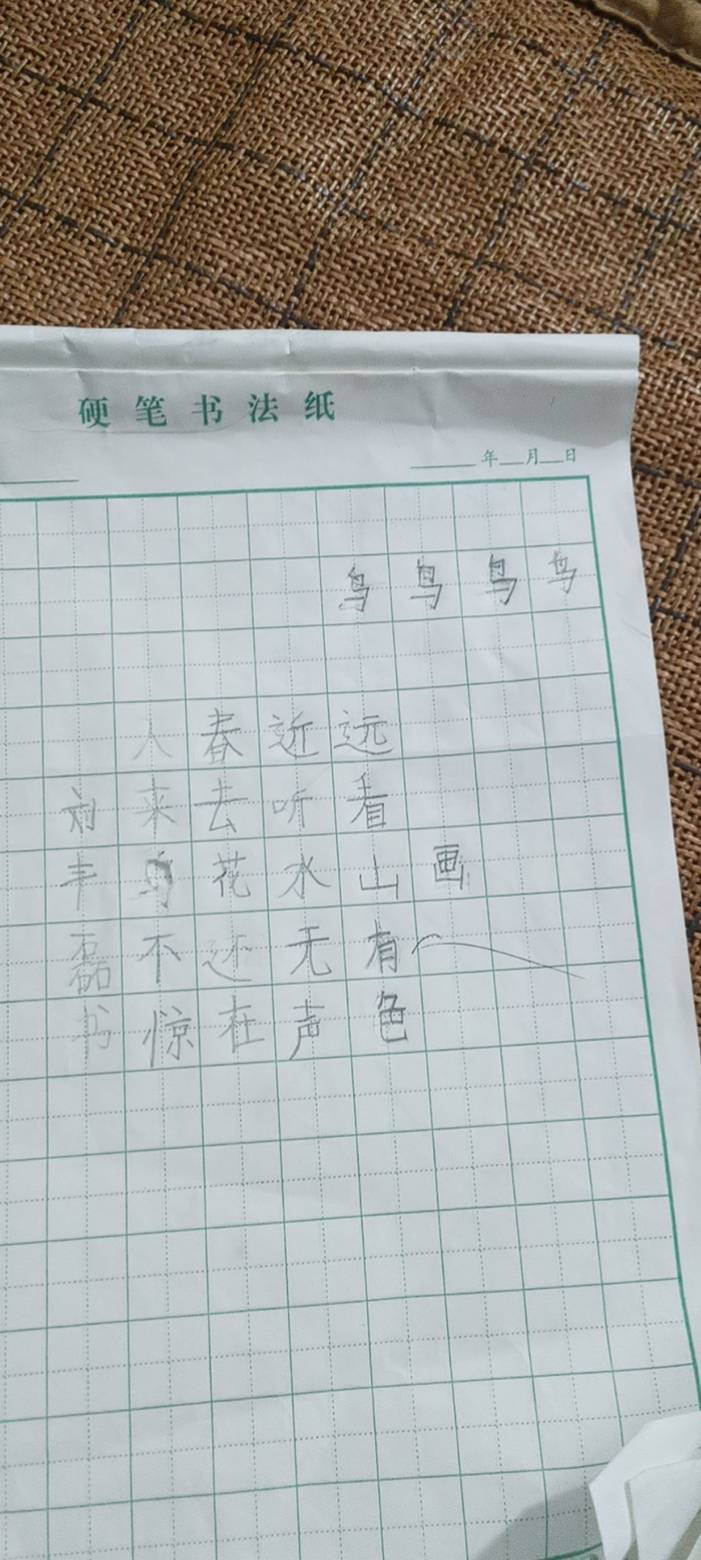 硬笔书法纸
年月日
鸟鸟鸟鸟
画
远看山有色
近听水无声
春去花还在
人来鸟不惊
刘丰磊书